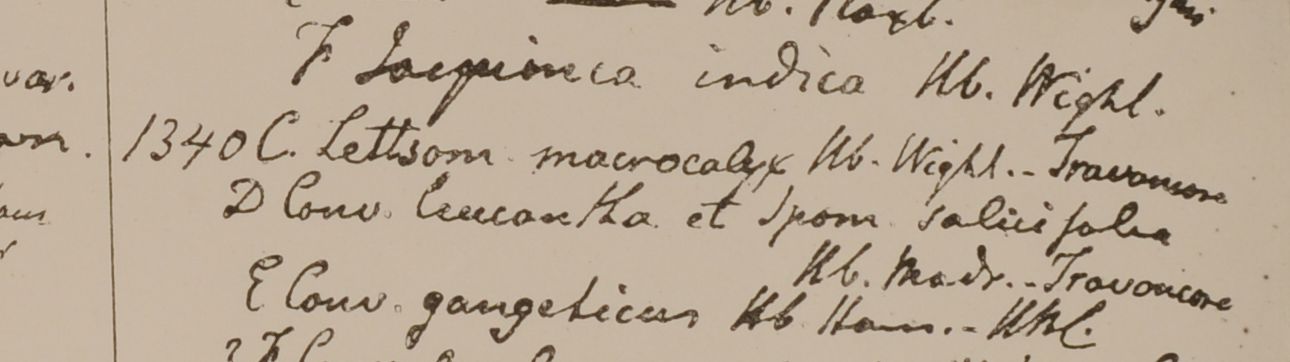 Hb. Roxb.
F Jacquionca indica Hb. Wight.
var.
1340 C. Lettsom macrocalyx Hb. Wight. -- Travancore
D Conv. leucantha et Ipom salicifolia
Hb. Madr. -- Travancore
E Conv. gangeticus Hb Ham. -